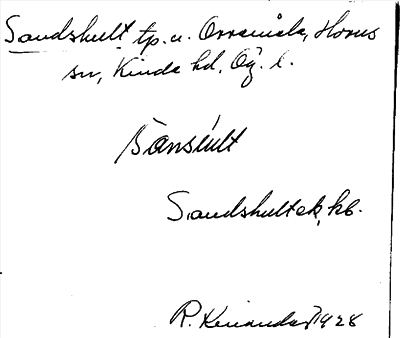 Sandshult tp. u. Orranäla, Horns
sn, Kinda hd, Ög. l.
Sansult
Sandshultek, kb.
R. Kenander 1928